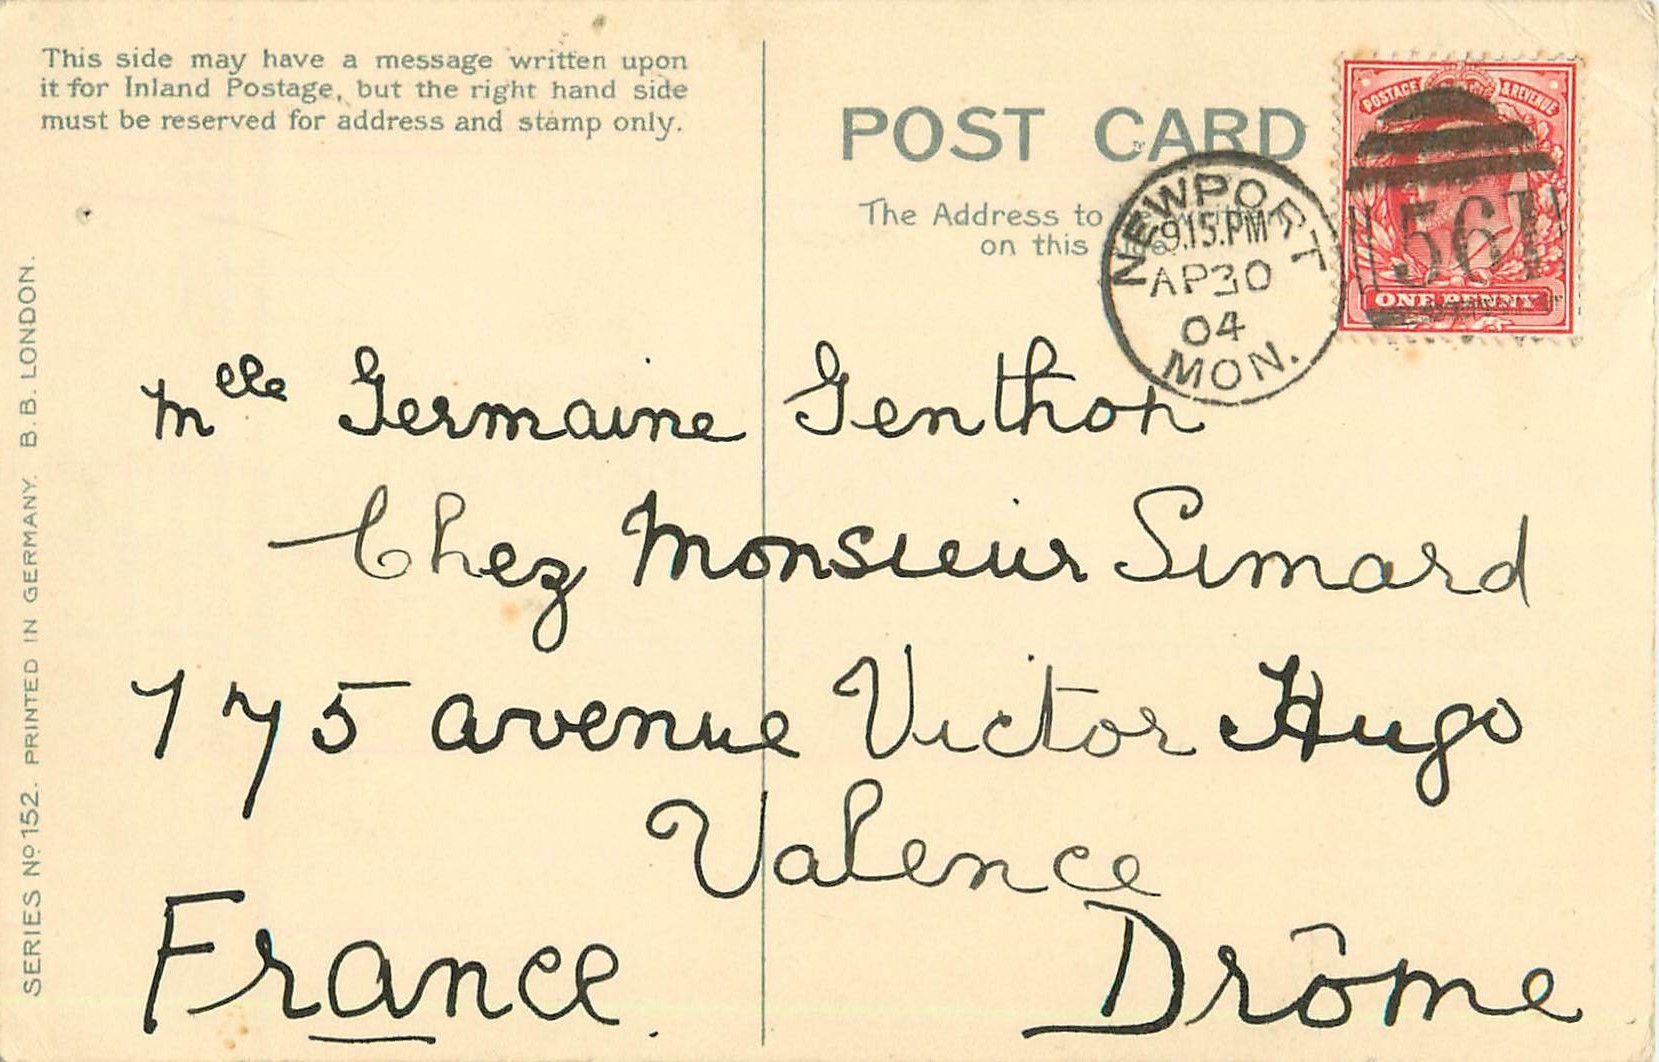 This side may have a message written upon
it for Inland Postage, but the right hand side
must be reserved for address and stamp only.
POST CARD
The Address to
on this
NEWPORT
9.15.PM
AP30
04
MON.
POSTAGE & REVENUE
561
ONE PENNY
Mlle Germaine Genthon
Chez Monsieur Simard
175 avenue Victor Hugo
Valence
France. Drôme
SERIES No 152. PRINTED IN GERMANY. B.B. LONDON.